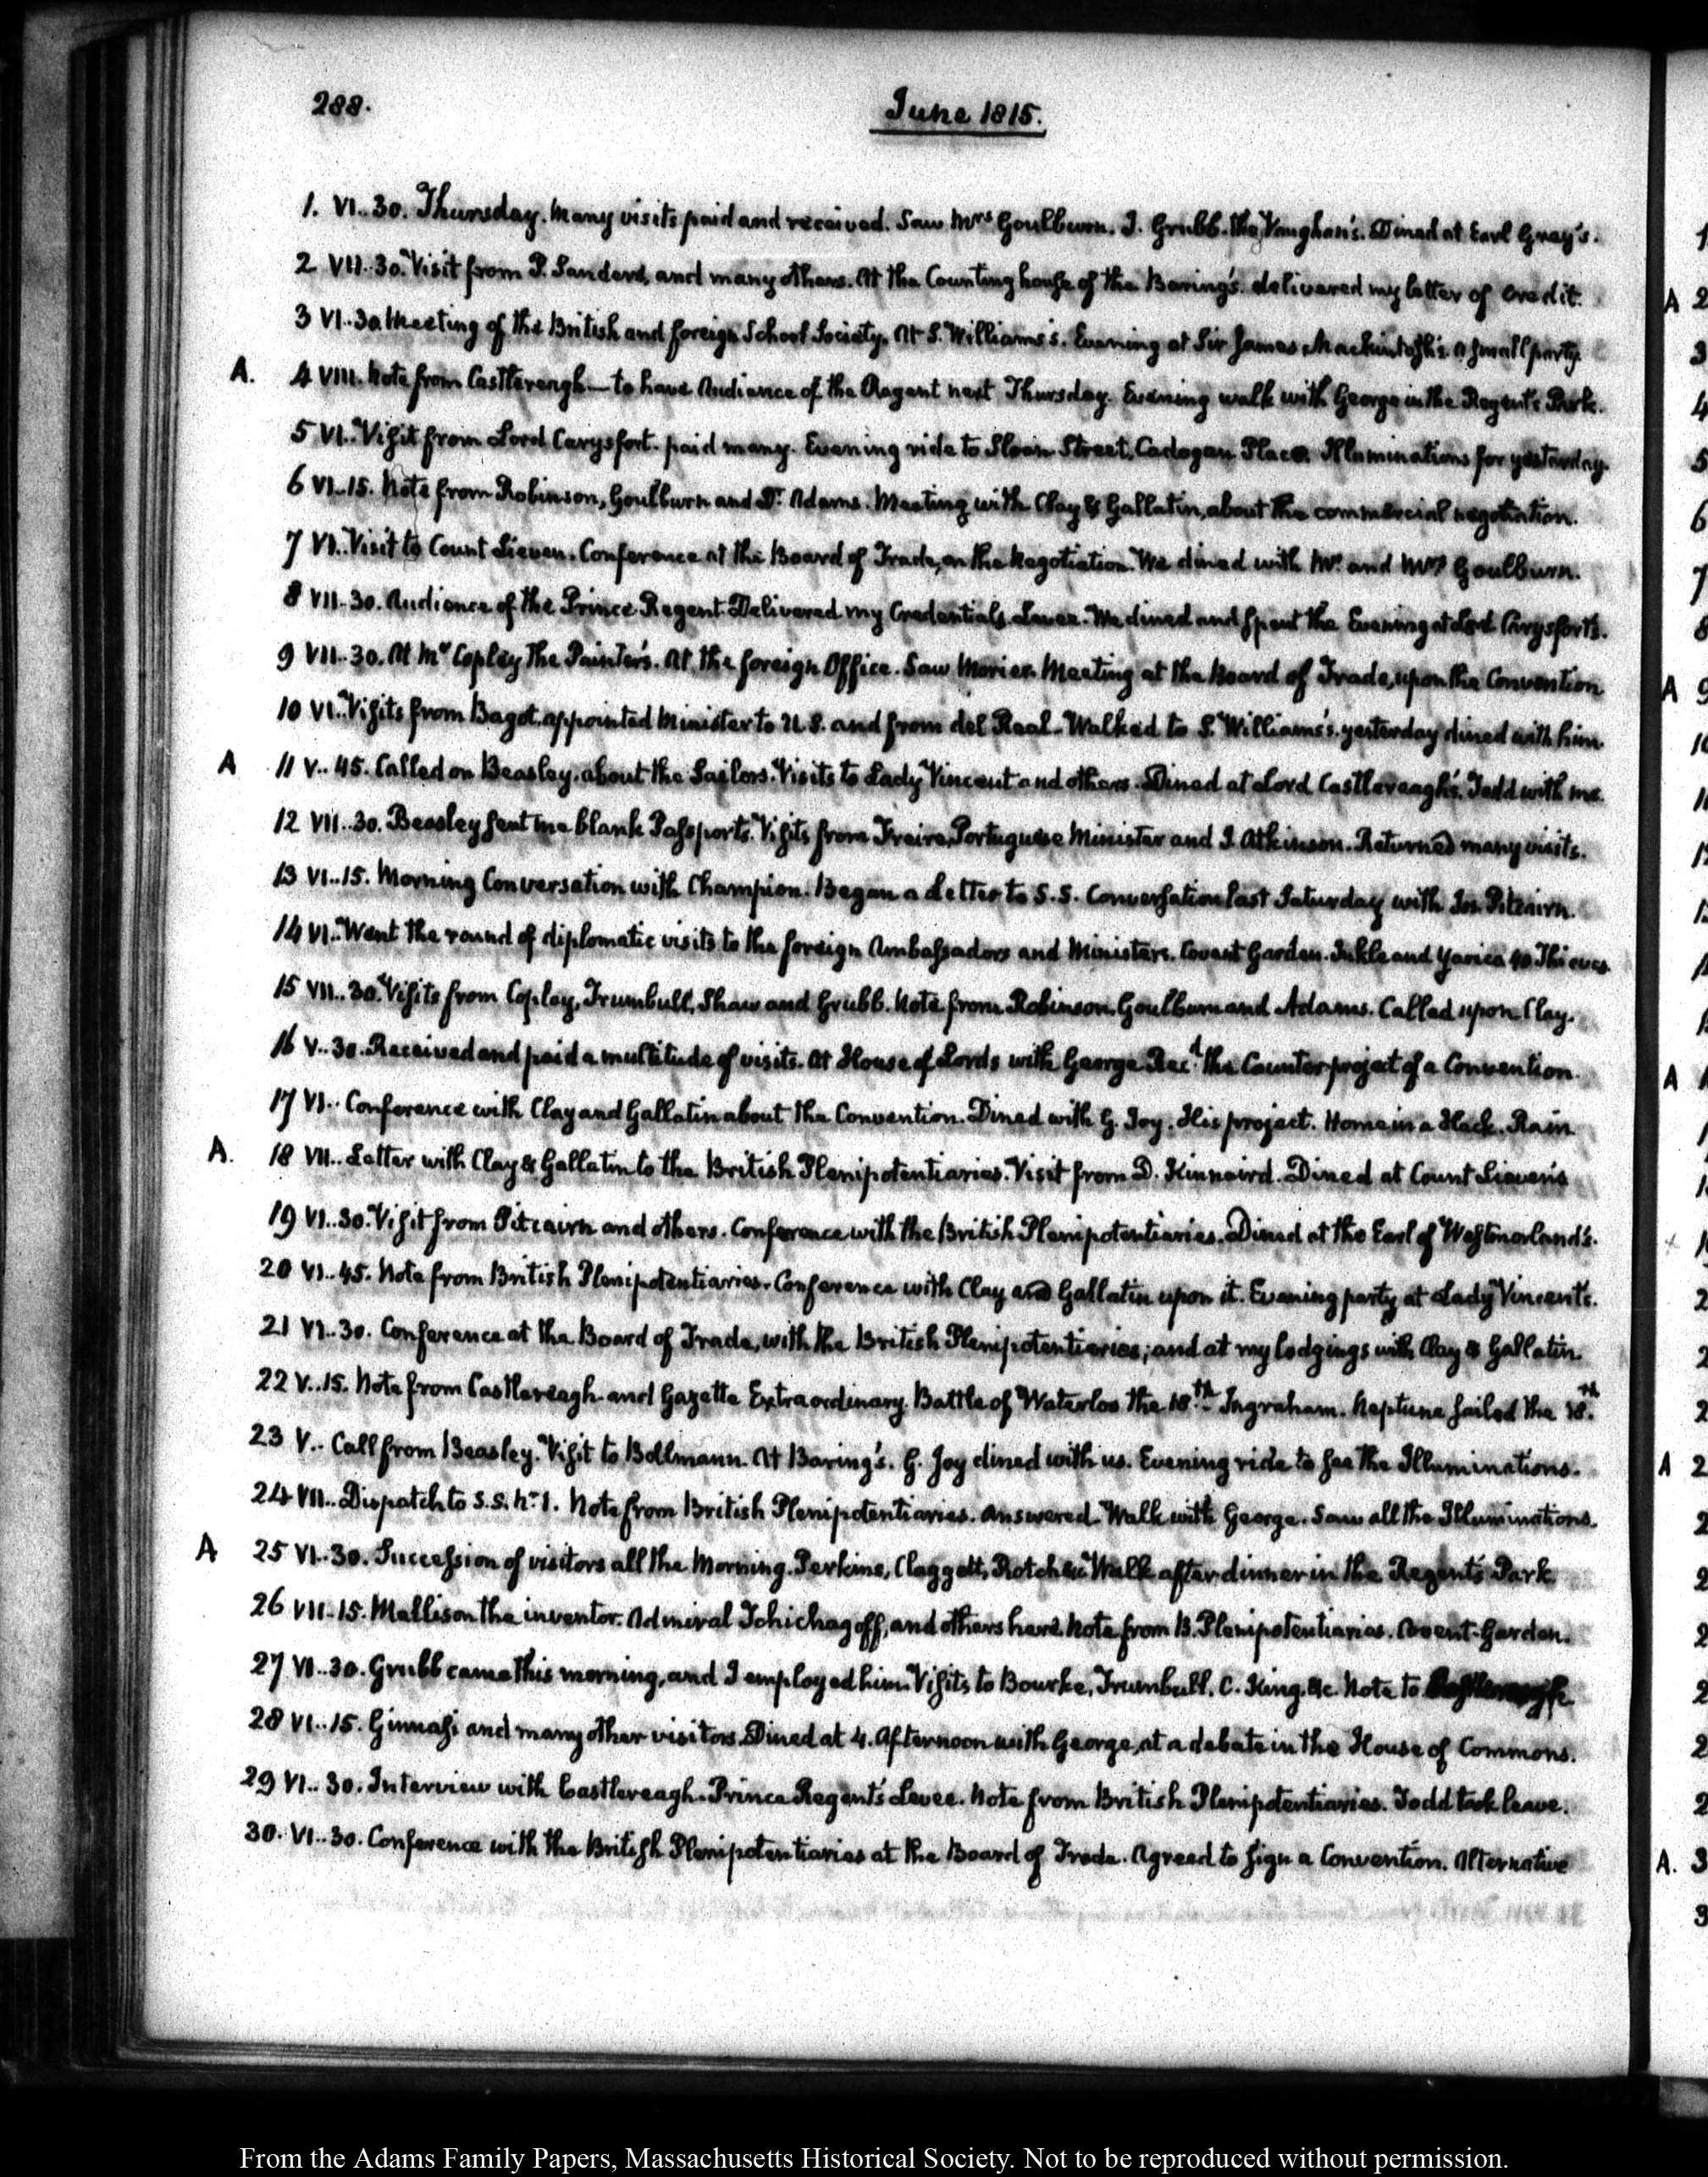 288.
June 1815.
1. VI..30. Thursday. Many visits paid and received. Saw Mrs Goulburn. J. Grubb. the Vaughan's. Dined at Earl Grey's.
2 VII..30. Visit from P. Sanders, and many others. At the Counting house of the Baring's. delivered my letter of Credit.
3 VI..30 Meeting of the British and foreign School Society. At S. Williams's. Evening at Sir James Mackintosh's. a small party.
A. 4 VIII. Note from Castlereagh—to have Audience of the Regent next Thursday. Evening walk with George in the Regent's Park.
5 VI.. Visit from Lord Carysfort. paid many. Evening ride to Sloan Street, Cadogan Place. Illuminations for yesterday.
6 VI..15. Note from Robinson, Goulburn and Dr. Adams. Meeting with Clay & Gallatin, about the commercial negotiation.
7 VI.. Visit to Count Lieven. Conference at the Board of Trade, on the Negotiation. We dined with Mr. and Mrs Goulburn.
8 VII..30. Audience of the Prince Regent. Delivered my Credentials. Levee. We dined and spent the Evening at Lord Carysfort's.
9 VII..30. At Mr Copley the Painter's. At the foreign Office. Saw Morier. Meeting at the Board of Trade, upon the Convention
10 VI.. Visits from Bagot. appointed Minister to U.S. and from del Real. Walked to S. Williams's. yesterday dined with him.
A 11 V..45. Called on Beasley. about the Sailors. Visits to Lady Vincent and others. Dined at Lord Castlereagh's. Todd with me.
12 VII..30. Beasley sent me blank Passports. Visits from Freire, Portuguese Minister and J. Atkinson. Returned many visits.
13 VI..15. Morning Conversation with Champion. Began a Letter to S.S. Conversation last Saturday with Jos. Pitcairn.
14 VI.. Went the round of diplomatic visits to the foreign Ambassadors and Ministers. Covent Garden. Inkle and Yarico 40 Thieves.
15 VII..30. Visits from Copley, Trumbull, Shaw and Grubb. Note from Robinson, Goulburn and Adams. Called upon Clay.
16 V..30. Received and paid a multitude of visits. At House of Lords with George. Recd. the Counter project of a Convention.
17 VI.. Conference with Clay and Gallatin about the Convention. Dined with G. Joy. His project. Home in a Hack. Rain
A. 18 VII.. Letter with Clay & Gallatin to the British Plenipotentiaries. Visit from D. Kinnaird. Dined at Count Lieven's
19 VI..30. Visit from Pitcairn and others. Conference with the British Plenipotentiaries. Dined at the Earl of Westmorland's.
20 VI..45. Note from British Plenipotentiaries. Conference with Clay and Gallatin upon it. Evening party at Lady Vincent's.
21 VI..30. Conference at the Board of Trade, with the British Plenipotentiaries; and at my lodgings with Clay & Gallatin.
22 V..15. Note from Castlereagh and Gazette Extraordinary. Battle of Waterloo the 18th. Ingraham. Neptune sailed the 18th.
23 V.. Call from Beasley. Visit to Bollmann. At Baring's. G. Joy dined with us. Evening ride to see the Illuminations.
24 VII.. Dispatch to S.S. Nr. 1. Note from British Plenipotentiaries. answered. Walk with George. Saw all the Illuminations.
A 25 VI..30. Succession of visitors all the Morning. Perkins, Claggett, Rotch &c. Walk after dinner in the Regent's Park
26 VII..15. Mallison the inventor. Admiral Tchichagoff, and others here. Note from B. Plenipotentiaries. Covent-Garden.
27 VI..30. Grubb came this morning, and I employed him. Visits to Bourke, Trumbull. C. King. &c. Note to Castlereagh
28 VI..15. Ginnasi and many other visitors. Dined at 4. Afternoon with George, at a debate in the House of Commons.
29 VI..30. Interview with Castlereagh. Prince Regent's Levee. Note from British Plenipotentiaries. Todd took leave.
30. VI..30. Conference with the British Plenipotentiaries at the Board of Trade. Agreed to sign a Convention. Alternative
From the Adams Family Papers, Massachusetts Historical Society. Not to be reproduced without permission.